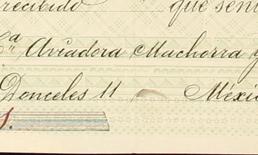 recibido que sen
Cª Aviadora Machorra y
Donceles 11 Méxi